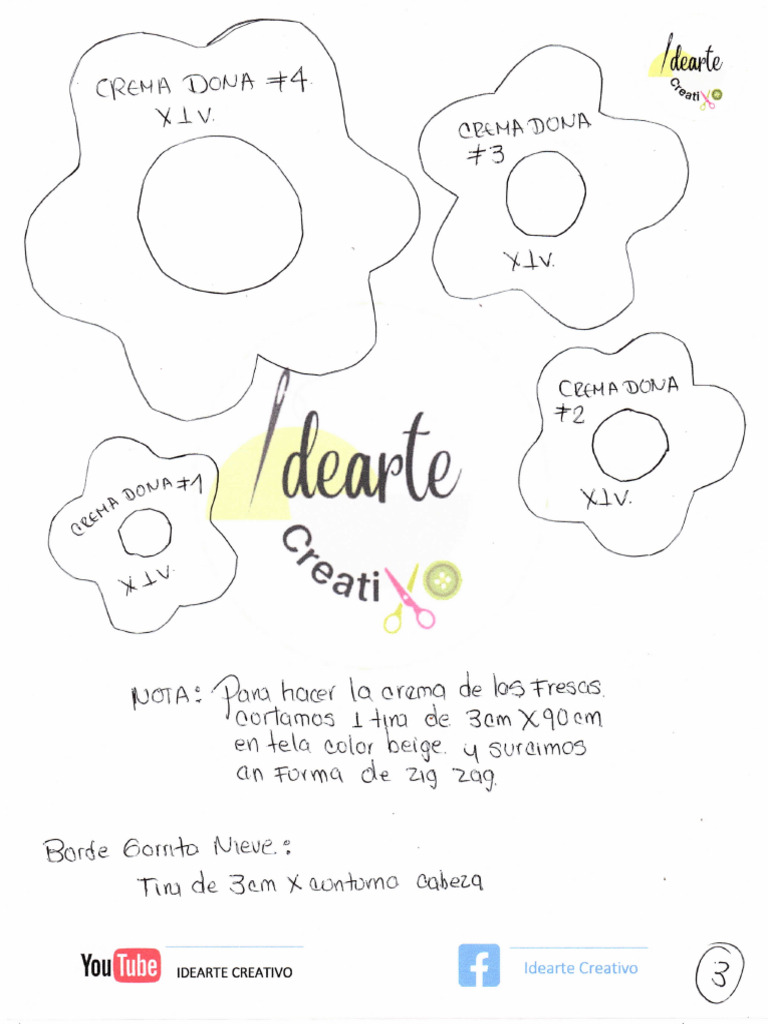 CREMA DONA #4
X1V.
Idearte
Creativo
CREMA DONA
#3
X1V.
CREMA DONA
#2
X1V.
CREMA DONA #1
X1V.
Idearte
Creativo
NOTA: Para hacer la crema de las Fresas.
cortamos 1 tira de 3cm X 90cm
en tela color beige. y surcimos
an Forma de zig zag.
Borde Gorrito Nieve.:
Tira de 3cm X contorno cabeza
YouTube IDEARTE CREATIVO
f Idearte Creativo
3